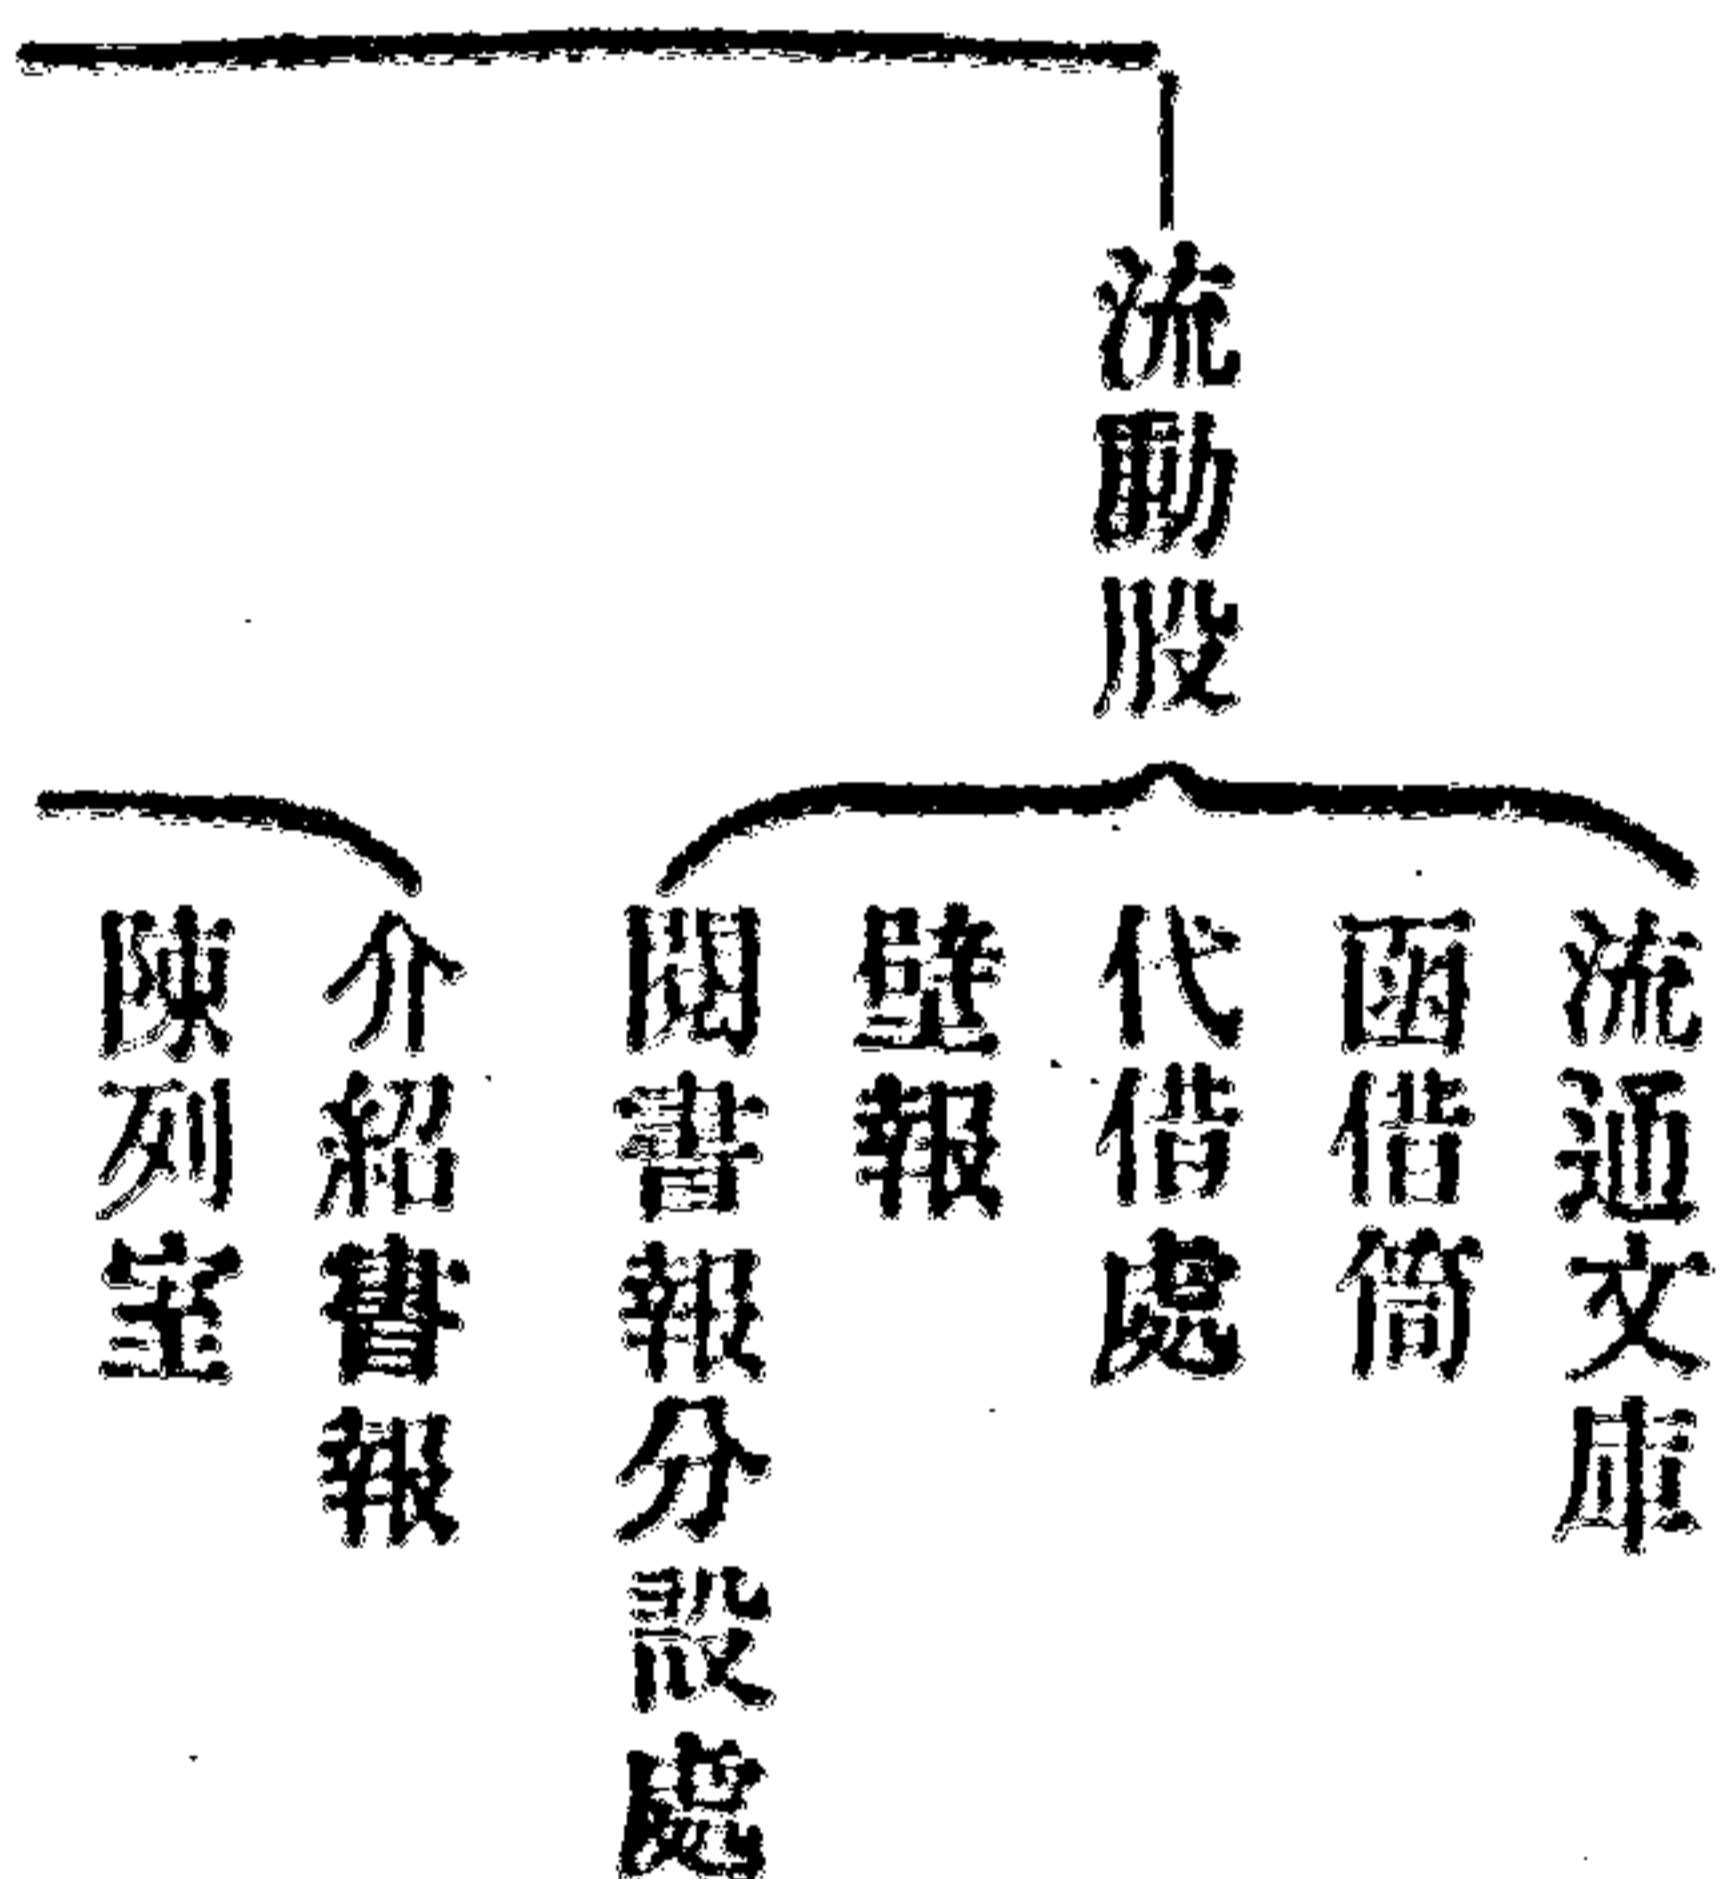 流動股
流通文庫
函借簡
代借處
壁報
閱書報分設處
介紹書報
陳列室